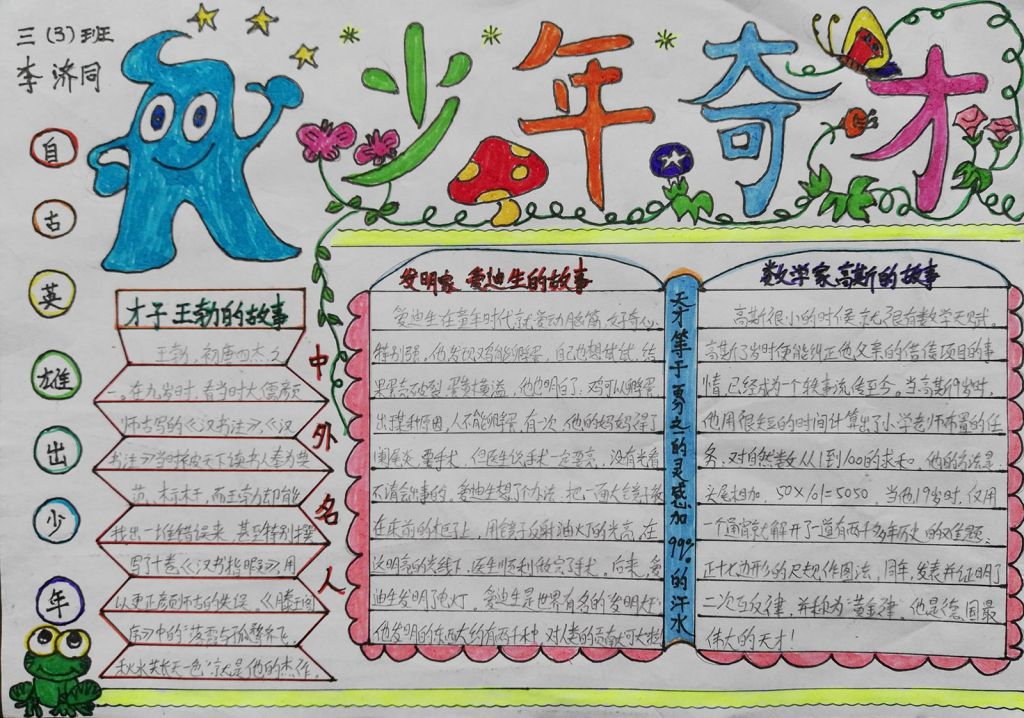 三(3)班
李济同
少年奇才
自古英雄出少年
才子王勃的故事
王勃,初唐四杰之
一。在九岁时,看当时大儒颜
师古写的《汉书注》。《汉
书注》当时被天下读书人奉为典
范、标杆,而王勃却能
找出一堆错误来,甚至特别撰
写了十卷《汉书指瑕》,用
以更正颜师古的失误。《滕王阁
序》中的“落霞与孤鹜齐飞,
秋水共长天一色”就是他的杰作。
中外名人
发明家 爱迪生的故事
爱迪生在童年时代就爱动脑筋,好奇心
特别强,他发现鸡能孵蛋,自己也想试试,结
果蛋壳破裂,蛋黄横溢,他也明白了:鸡可以孵蛋
人不能孵蛋,有次,他的妈妈得了
阑尾炎,要手术,但医生说手术一定要亮,没有光着
不清会出事的,爱迪生想了个办法,把一面大镜子放
在床前的柜子上,用镜子反射油灯的光高,在
这明亮的光线下,医生顺利做完了手术。后来,爱
迪生发明了电灯。爱迪生是世界有名的“发明大王”
他发明的东西大约有两千种,对人类的贡献可大啦
天才等于百分之一的灵感加99%的汗水
数学家高斯的故事
高斯很小的时候就很有数学天赋。
高斯3岁时便能纠正他父亲的借债项目的事
情,已经成为一个轶事流传至今。当高斯9岁时,
他用很短的时间计算出了小学老师布置的任
务:对自然数从1到100的求和。他的方法是
头尾相加,50×101=5050,当他19岁时,仅用
一个通宵就解开了一道有两千多年历史的难题:
正十七边形的尺规作图法,同年,发表并证明了
二次互反律,并称为“黄金律”。他是德国最
伟大的天才!